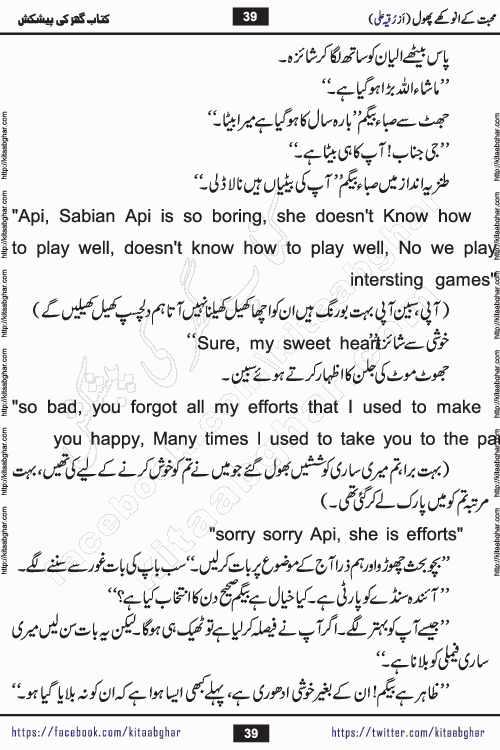 محبت کے انوکھے پھول (از رُقیہ علی) 39 کتاب گھر کی پیشکش
پاس بیٹھے الیان کو ساتھ لگا کر شائزہ۔
’’ماشاء اللہ بڑا ہو گیا ہے۔‘‘
جھٹ سے صباء بیگم ’’بارہ سال کا ہو گیا ہے میرا بیٹا۔‘‘
’’جی جناب! آپ کا ہی بیٹا ہے۔‘‘
طنزیہ انداز میں صباء بیگم ’’آپ کی بیٹیاں ہیں نا لاڈلی۔‘‘
"Api, Sabian Api is so boring, she doesn't Know how
to play well, doesn't know how to play well, No we play
intersting games"
(آپی، سبین آپی بہت بورنگ ہیں ان کو اچھا کھیل کھیلنا نہیں آتا ہم دلچسپ کھیل کھیلیں گے)
خوشی سے شائزہ ’’Sure, my sweet heart‘‘
جھوٹ موٹ کی جلن کا اظہار کرتے ہوئے سبین۔
"so bad, you forgot all my efforts that I used to make
you happy, Many times I used to take you to the pa
(بہت برا، تم میری ساری کوششیں بھول گئے جو میں نے تم کو خوش کرنے کے لیے کی تھیں، بہت
مرتبہ تم کو میں پارک لے کر گئی تھی۔)
"sorry sorry Api, she is efforts"
’’بچو بحث چھوڑو اور ہم ذرا آج کے موضوع پر بات کر لیں۔‘‘ سب باپ کی بات غور سے سننے لگے۔
’’آئندہ سنڈے کو پارٹی ہے۔ کیا خیال ہے بیگم صحیح دن کا انتخاب کیا ہے؟‘‘
’’جیسے آپ کو بہتر لگے۔ اگر آپ نے فیصلہ کر لیا ہے تو ٹھیک ہی ہوگا۔ لیکن یہ بات سن لیں میری
ساری فیملی کو بلانا ہے۔‘‘
’’ظاہر ہے بیگم! ان کے بغیر خوشی ادھوری ہے، پہلے کبھی ایسا ہوا ہے کہ ان کو نہ بلایا گیا ہو۔‘‘
https://facebook.com/kitaabghar 39 https://twitter.com/kitaabghar
http://kitaabghar.com http://kitaabghar.com http://kitaabghar.com http://kitaabghar.com http://kitaabghar.com http://kitaabghar.com
http://kitaabghar.com http://kitaabghar.com http://kitaabghar.com http://kitaabghar.com http://kitaabghar.com http://kitaabghar.com
kitaabghar.com
facebook.com/kitaabghar